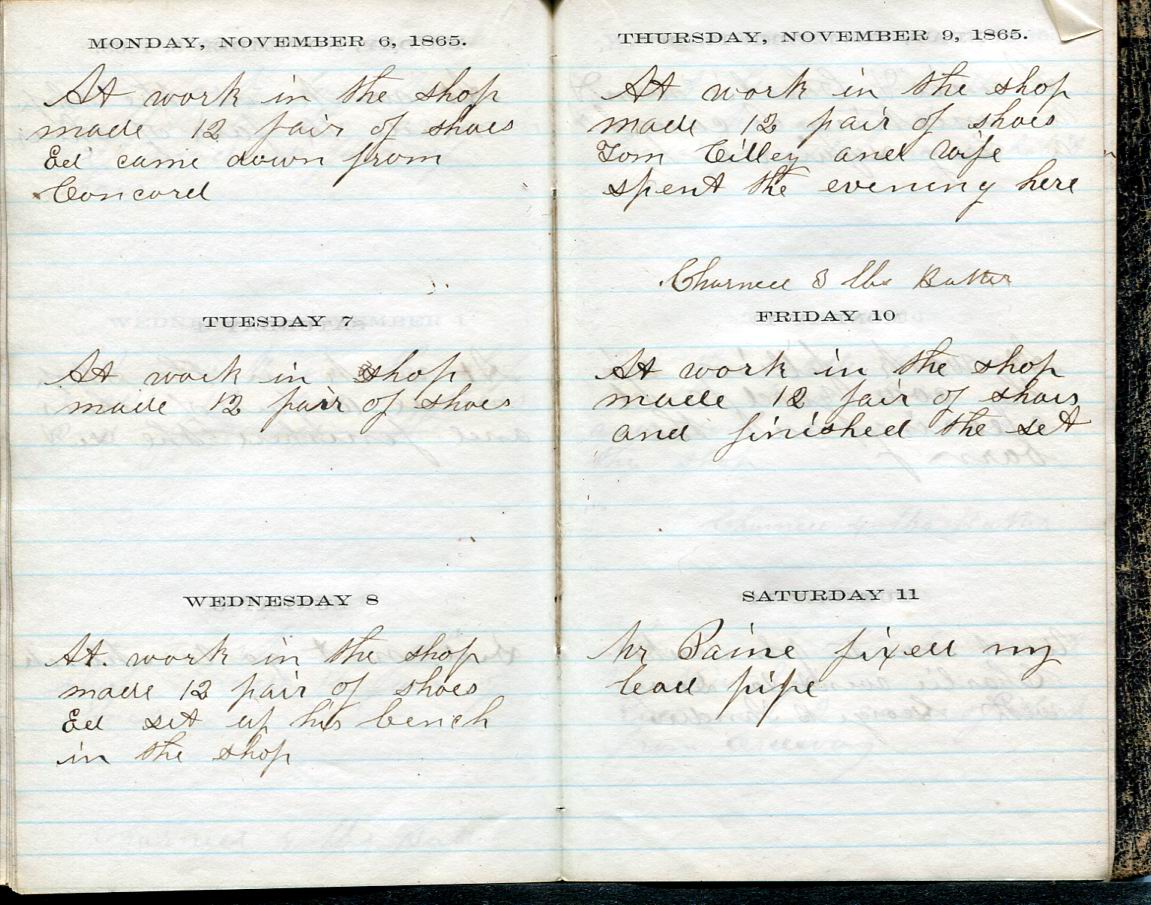 MONDAY, NOVEMBER 6, 1865.
At work in the shop
made 12 pair of shoes
Ed came down from
Concord
TUESDAY 7
At work in shop
made 12 pair of shoes
WEDNESDAY 8
At. work in the shop
made 12 pair of shoes
Ed set up his bench
in the shop
THURSDAY, NOVEMBER 9, 1865.
At work in the shop
made 12 pair of shoes
Tom Cilley and wife
spent the evening here
Churned 8 lbs Butter
FRIDAY 10
At work in the shop
made 12 pair of shoes
and finished the set
SATURDAY 11
Mr Paine fixed my
lead pipe